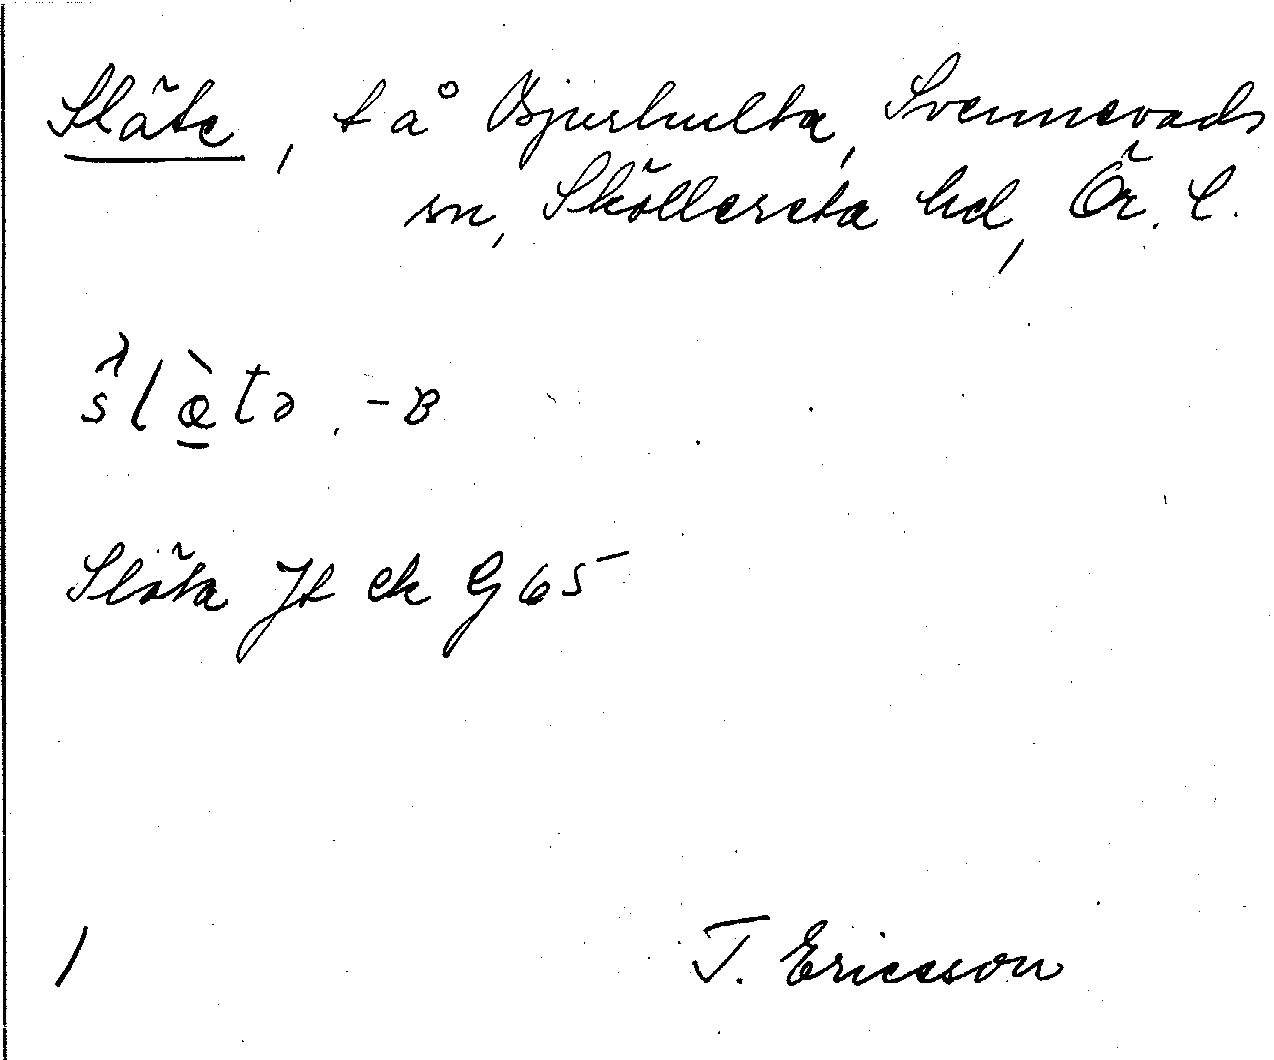 Släte, t å Bjurhulta, Svennevads
sn, Sköllersta hd, Ör. l.
slæ̀tə, -ʙ
Släta Jt ek G65
1
T. Ericsson